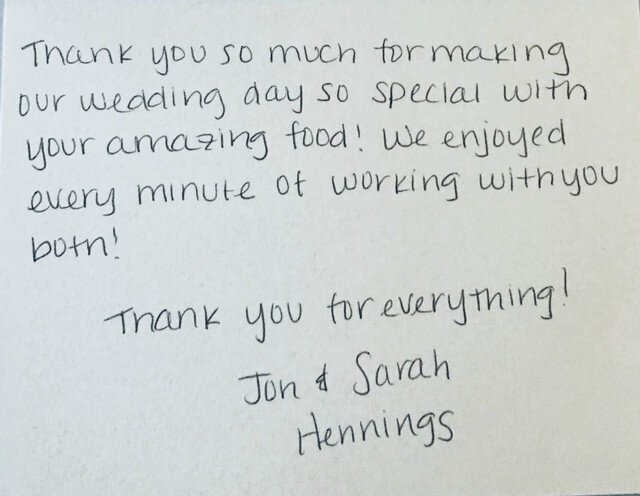 Thank you so much for making
our wedding day so special with
your amazing food! We enjoyed
every minute of working with you
both!
Thank you for everything!
Jon & Sarah
Hennings